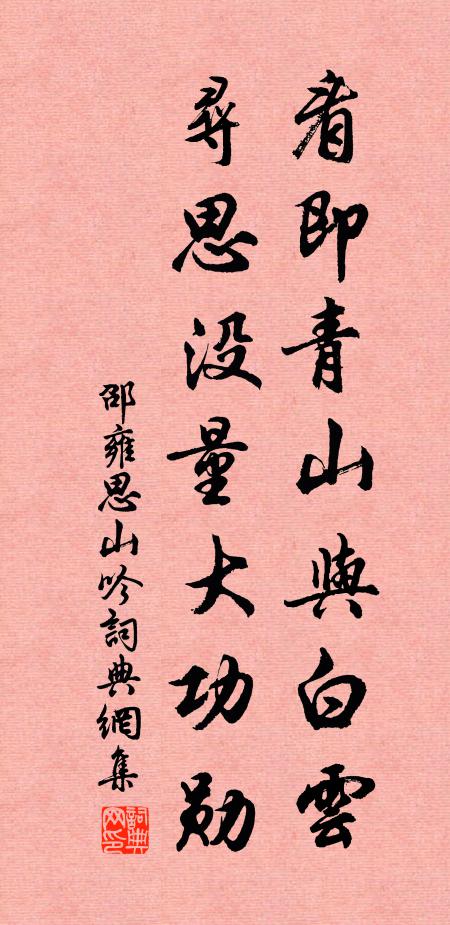 看即青山與白雲
尋思没量大功勛
邵雍思山吟詞典網集
詞典网印